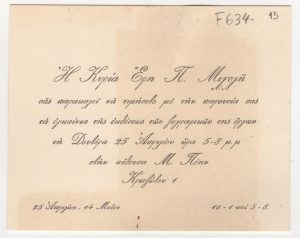 F634-
13
Ἡ Κυρία Ἔρη Π.
σᾶς παρακαλεῖ νὰ τιμήσετε μὲ τὴν παρουσία σας
τὰ ἐγκαίνια τῆς ἐκθέσεως τῶν ζωγραφικῶν της ἔργων
τὴ Δευτέρα 25 Ἀπριλίου ὥρα 5-8 μ.μ
στὴν αἴθουσα Μ.
1
25 Ἀπριλίου - 14 Μαΐου
10 - 1 καὶ 5 - 8.